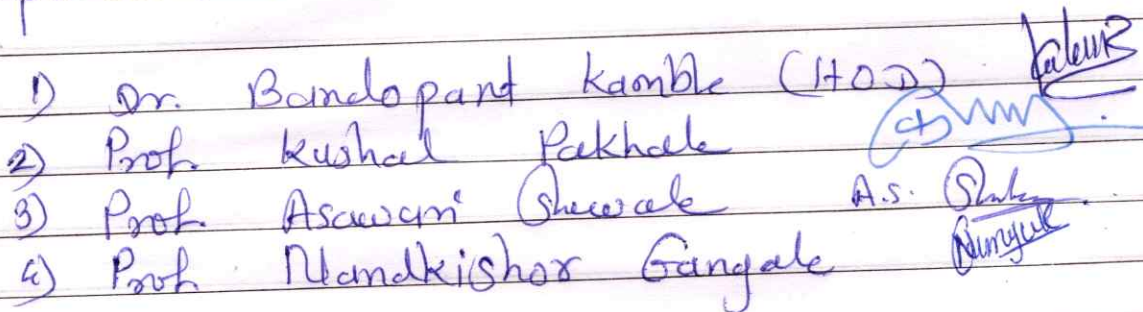 1) Dr. Bandopant Kamble (HOD)
2) Prof. Kushal Pakhale
3) Prof. Asawari Shewale A.S.
4) Prof. Nandkishor Gangale